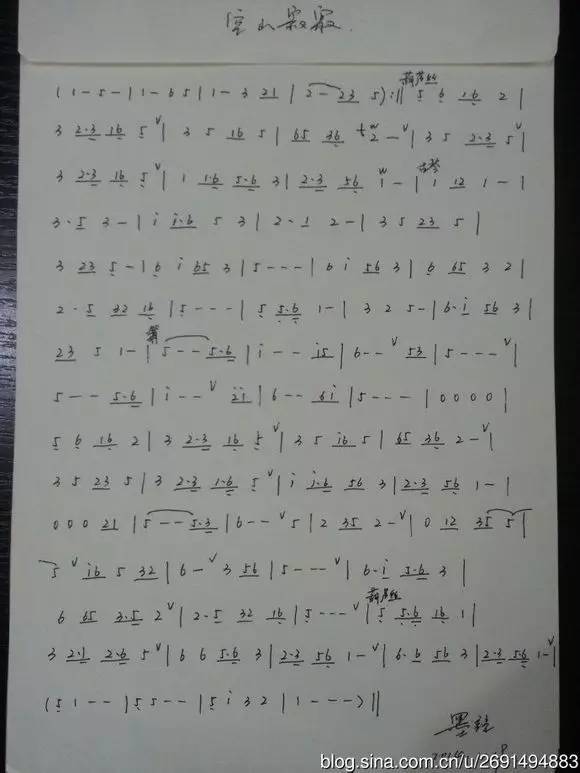 空山寂寂
(1 - 5 - | 1 - 6 5 | 1 - 3 21 | 2 - 23 5) :|| 葫芦丝 5 6 1·6 2 |
3 2·3 16 5 V | 3 5 16 5 | 65 36 2 - V | 3 5 2·3 5 V |
3 2·3 16 5 V | 1 1·6 5·6 3 | 2·3 56 1 - | 古琴 1 12 1 - |
3·5 3 - | i i·6 5 3 | 2·1 2 - | 3 5 23 5 |
3 23 5 - | 6 i 65 3 | 5 - - - | 6 i 56 3 | 6 65 3 2 |
2·5 32 16 | 5 - - - | 5 5·6 1 - | 3 2 5 - | 6·i 56 3 |
23 5 1 - | 箫 5 - - 5·6 | i - - i5 | 6 - - V 53 | 5 - - - V |
5 - - 5·6 | i - - V 2i | 6 - - 6i | 5 - - - | 0 0 0 0 |
5 6 16 2 | 3 2·3 16 5 V | 3 5 i6 5 | 65 36 2 - V |
3 5 23 5 | 3 2·3 1·6 5 V | i i·6 56 3 | 2·3 56 1 - |
0 0 0 21 | 5 - - 5·3 | 6 - - V 5 | 2 35 2 - V | 0 12 35 5 |
5 V i6 5 32 | 6 - V 3 56 | 5 - - - V | 6·i 5·6 3 |
6 65 3·5 2 V | 2·5 32 16 | 5 - - - V | 葫芦丝 5 5·6 16 1 |
3 2·1 2·6 5 V | 6 6 5·6 3 | 2·3 56 1 - V | 6·6 56 3 | 2·3 5·6 1 - V |
(5 1 - - | 5 5 - - | 5 i 3 2 | 1 - - - ) ||
blog.sina.com.cn/u/2691494883